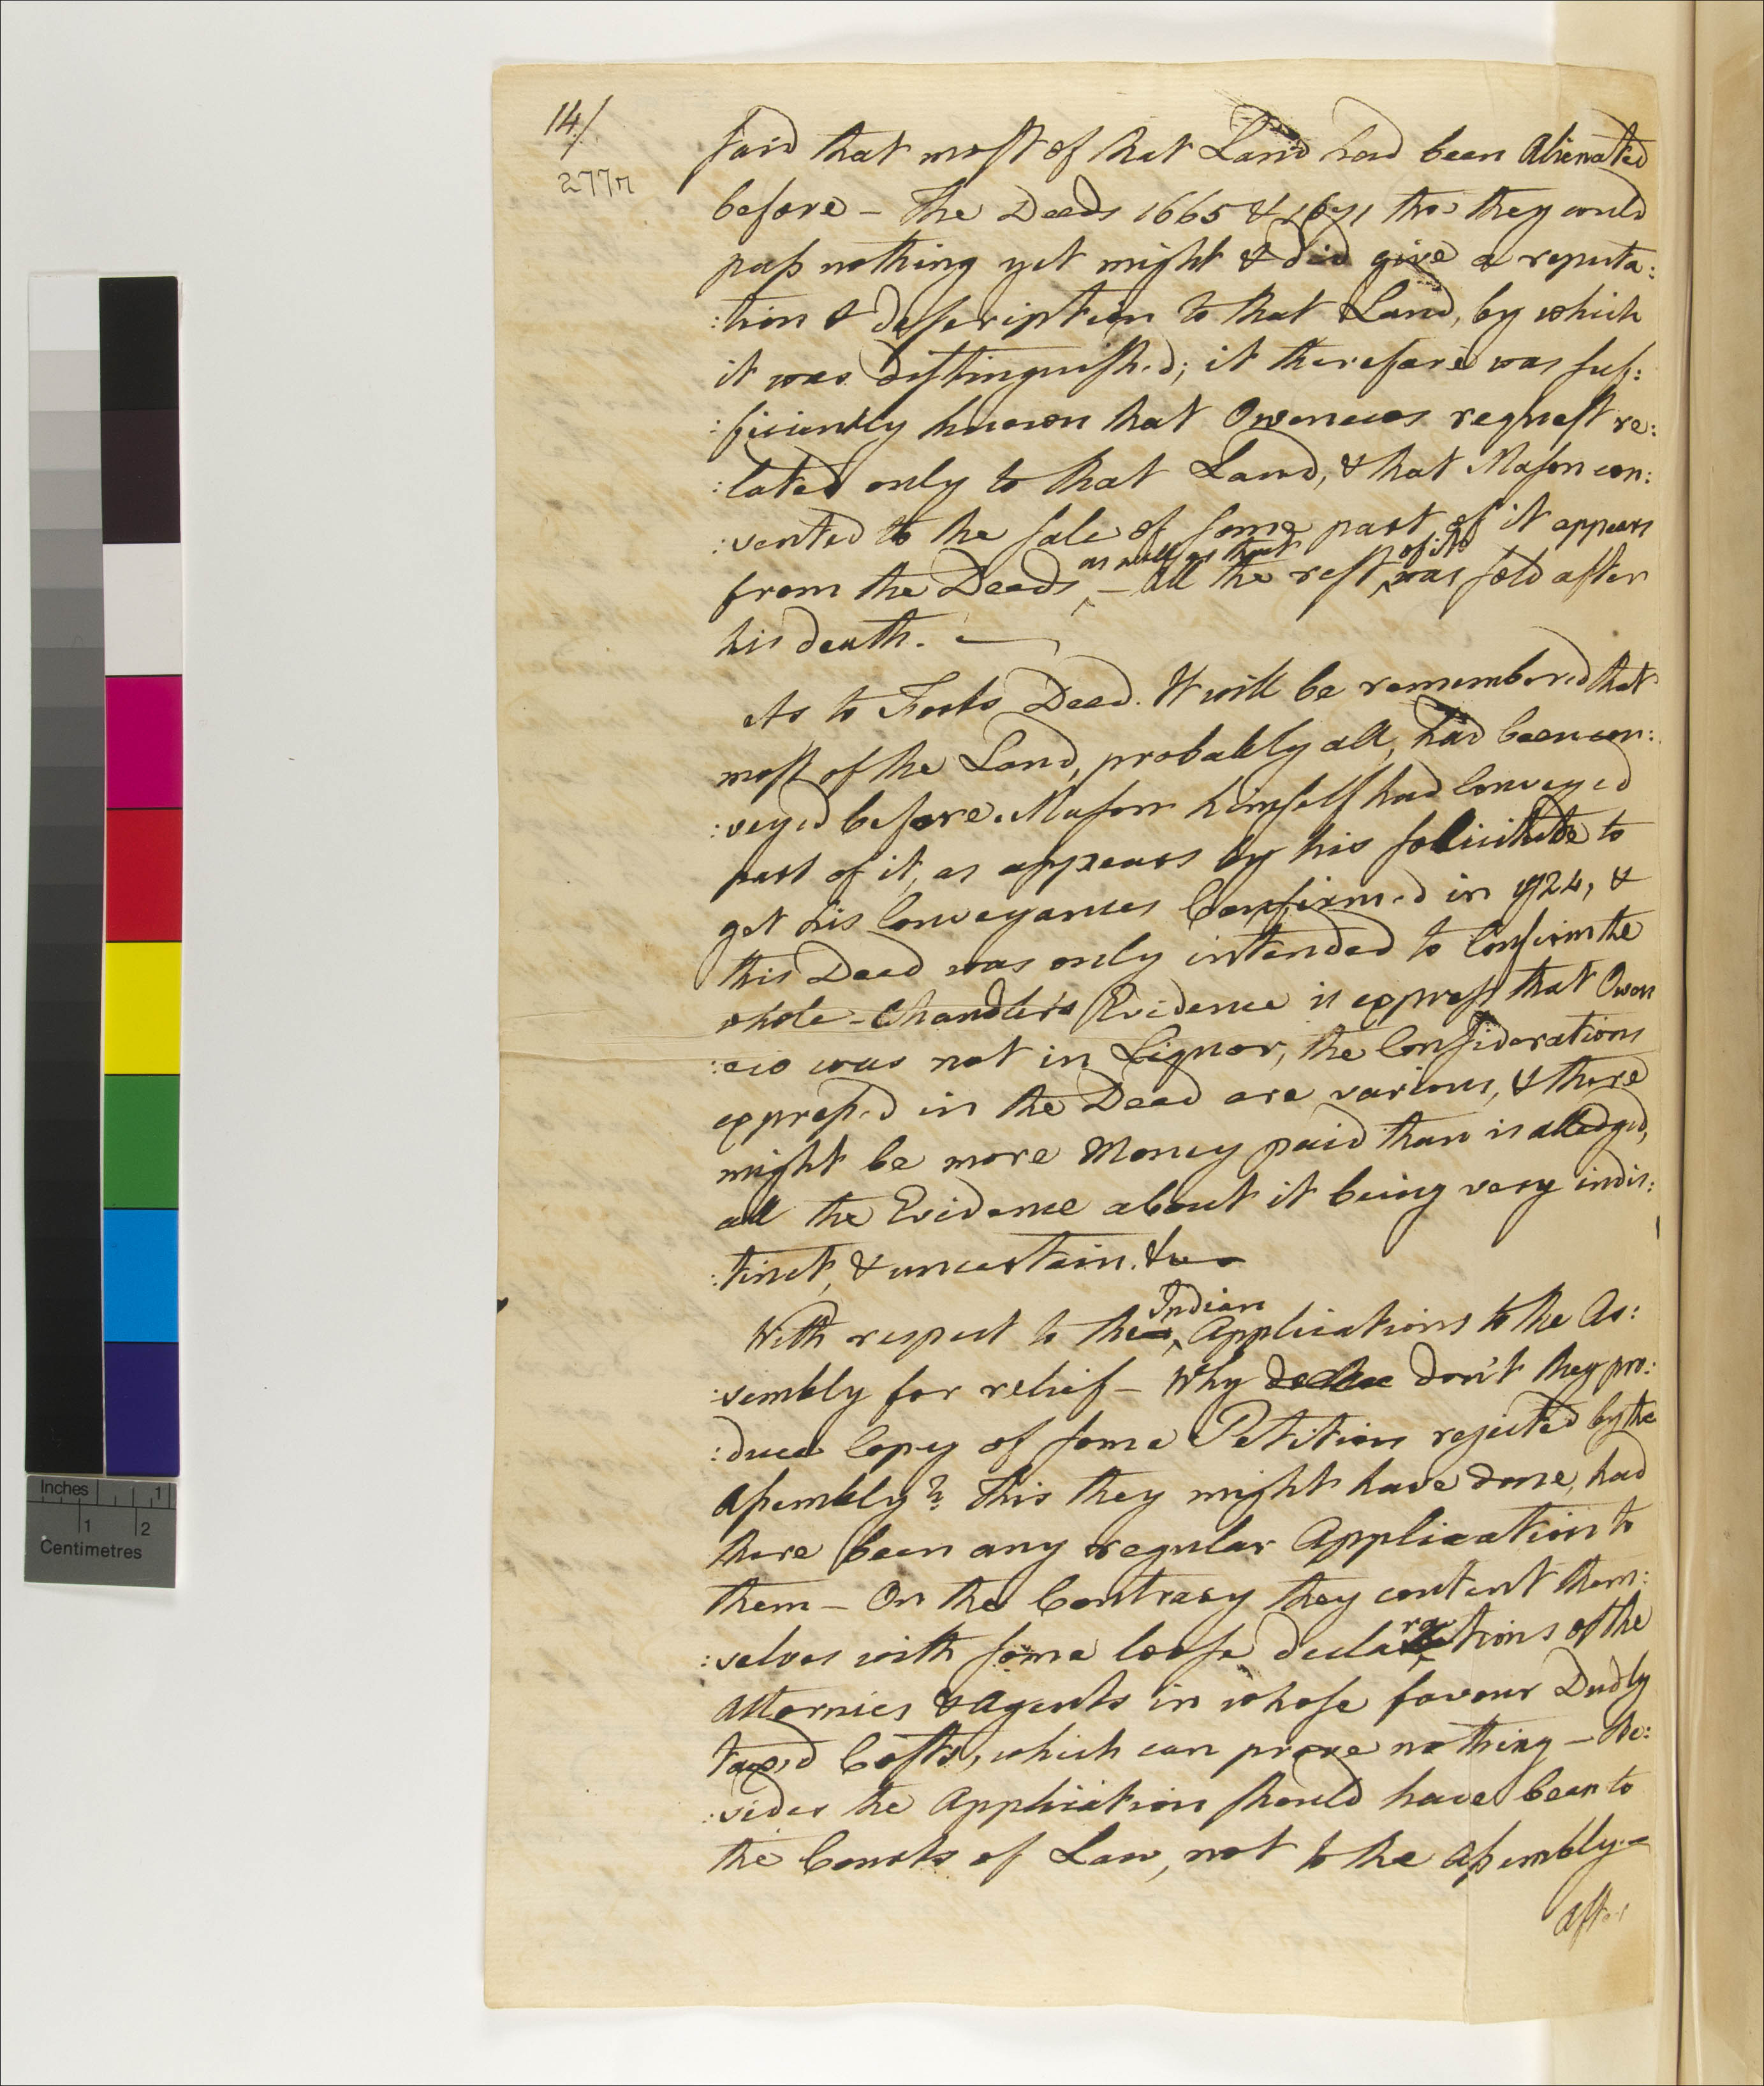 14/
277r
said that most of that Land had been Alienated
before – The Deeds 1665 & 1671 tho they could
pass nothing yet might & did give a reputa:
:tion & desscription to that Land, by which
it was distinguished; it therefore was suf:
:ficiently known that Owenecos request re:
:lated only to that Land, & that Mason con:
:sented to the sale of some part of it appears
as well as that of it
from the Deeds ‸ – all the rest ‸ was sold after
his death. –
As to Foots Deed. It will be remembered that
most of the Land, probably all, had been con:
:veyed before. Mason himself had Conveyed
part of it, as appears by his solicitude to
get his Conveyances Confirm.d in 1724, &
this Deed was only intended to Confirm the
whole – Chandler's Evidence is express that Owen
:eco was not in Liquor, the Considerations
express.d in the Deed are various, & there
might be more Money paid than is alledged,
all the Evidence about it being very indis:
:tinct, & uncertain. &c
Indian
With respect to the ‸ Applications to the As:
:sembly for relief – Why don't they pro:
:duce Copy of some Petition rejected by the
Assembly? This they might have done, had
there been any regular Application to
them – On the Contrary they content them:
:selves with some loose declarations of the
Attornies & Agents in whose favour Dudly
taxed Costs, which can prove nothing – Be:
:sides the Application should have been to
the Courts of Law, not to the Assembly –
After